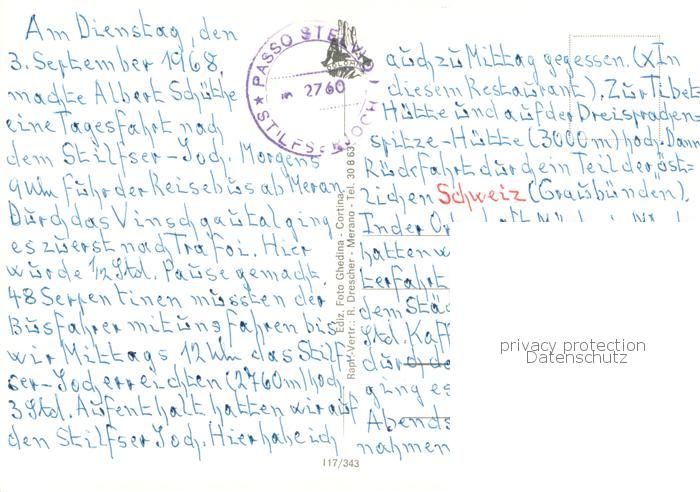 Am Dienstag, den
3. September 1968,
machte Albert Schüthe
eine Tagesfahrt nach
dem Stilfser-Joch. Morgens
9 Uhr fuhr der Reisebus ab Meran.
Durch das Vinschgautal ging
es zuerst nach Trafoi. Hier
wurde 1/2 Std. Pause gemacht.
48 Serpentinen müssten der
Busfahrer mit uns fahren bis
wir Mittags 12 Uhr das Stilf-
ser-Joch erreichten (2760 m) hoch
3 Std. Aufenthalt hatten wir auf
den Stilfser Joch. Hier habe ich
PASSO STELVIO
2760
STILFSERJOCH
Ediz. Foto Ghedina - Cortina
Rapp.-Vertr.: R. Drescher - Merano - Tel. 30 8 63
117/343
auch zu Mittag gegessen. (x In
diesem Restaurant). Zur Tibet
Hütte und auf der Dreisprachen=
spitze-Hütte (3000 m) hoch. Dann
Rückfahrt durch ein Teil der öst=
lichen Schweiz (Graubünden).
In der
hatten w
terfahrt
dem Stä
Std. Kaff
durch de
ging es
Abends
nahmen
privacy protection
Datenschutz